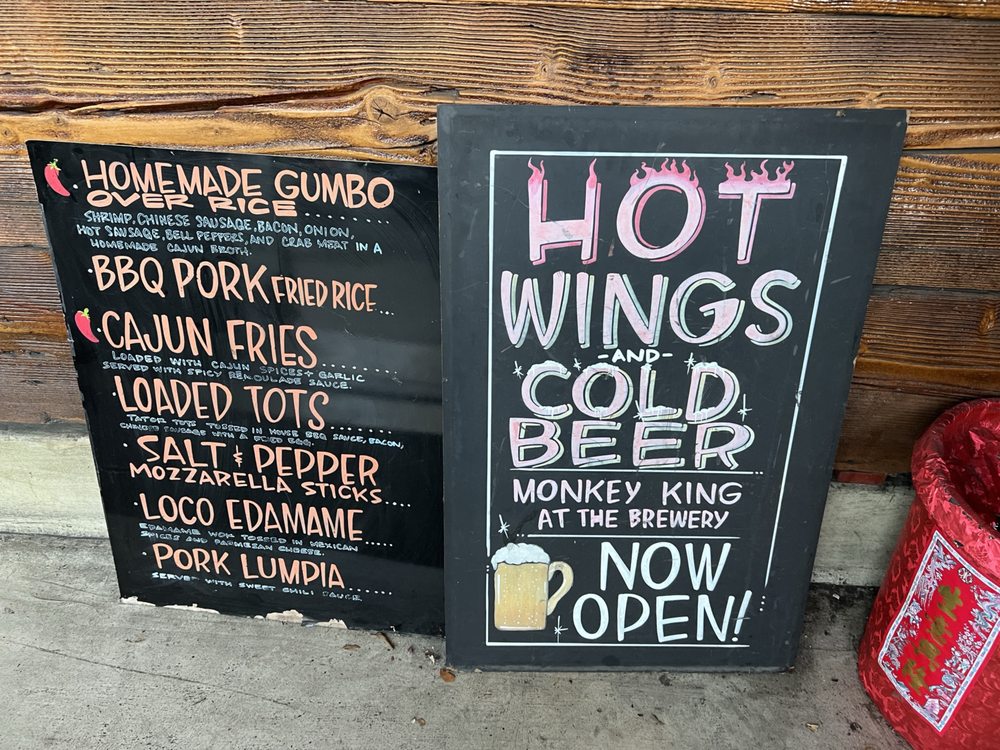 HOMEMADE GUMBO
OVER RICE
SHRIMP, CHINESE SAUSAGE, BACON, ONION,
HOT SAUSAGE, BELL PEPPERS, AND CRAB MEAT IN A
HOMEMADE CAJUN BROTH.
BBQ PORK FRIED RICE
CAJUN FRIES
LOADED WITH CAJUN SPICES + GARLIC
SERVED WITH SPICY REMOULADE SAUCE.
LOADED TOTS
TATOR TOTS TOSSED IN HOUSE BBQ SAUCE, BACON,
CHINESE SAUSAGE WITH A FRIED EGG.
SALT & PEPPER
MOZZARELLA STICKS
LOCO EDAMAME
EDAMAME WOK TOSSED IN MEXICAN
SPICES AND PARMESAN CHEESE.
PORK LUMPIA
SERVED WITH SWEET CHILI SAUCE
HOT
WINGS
-AND-
COLD
BEER
MONKEY KING
AT THE BREWERY
NOW
OPEN!